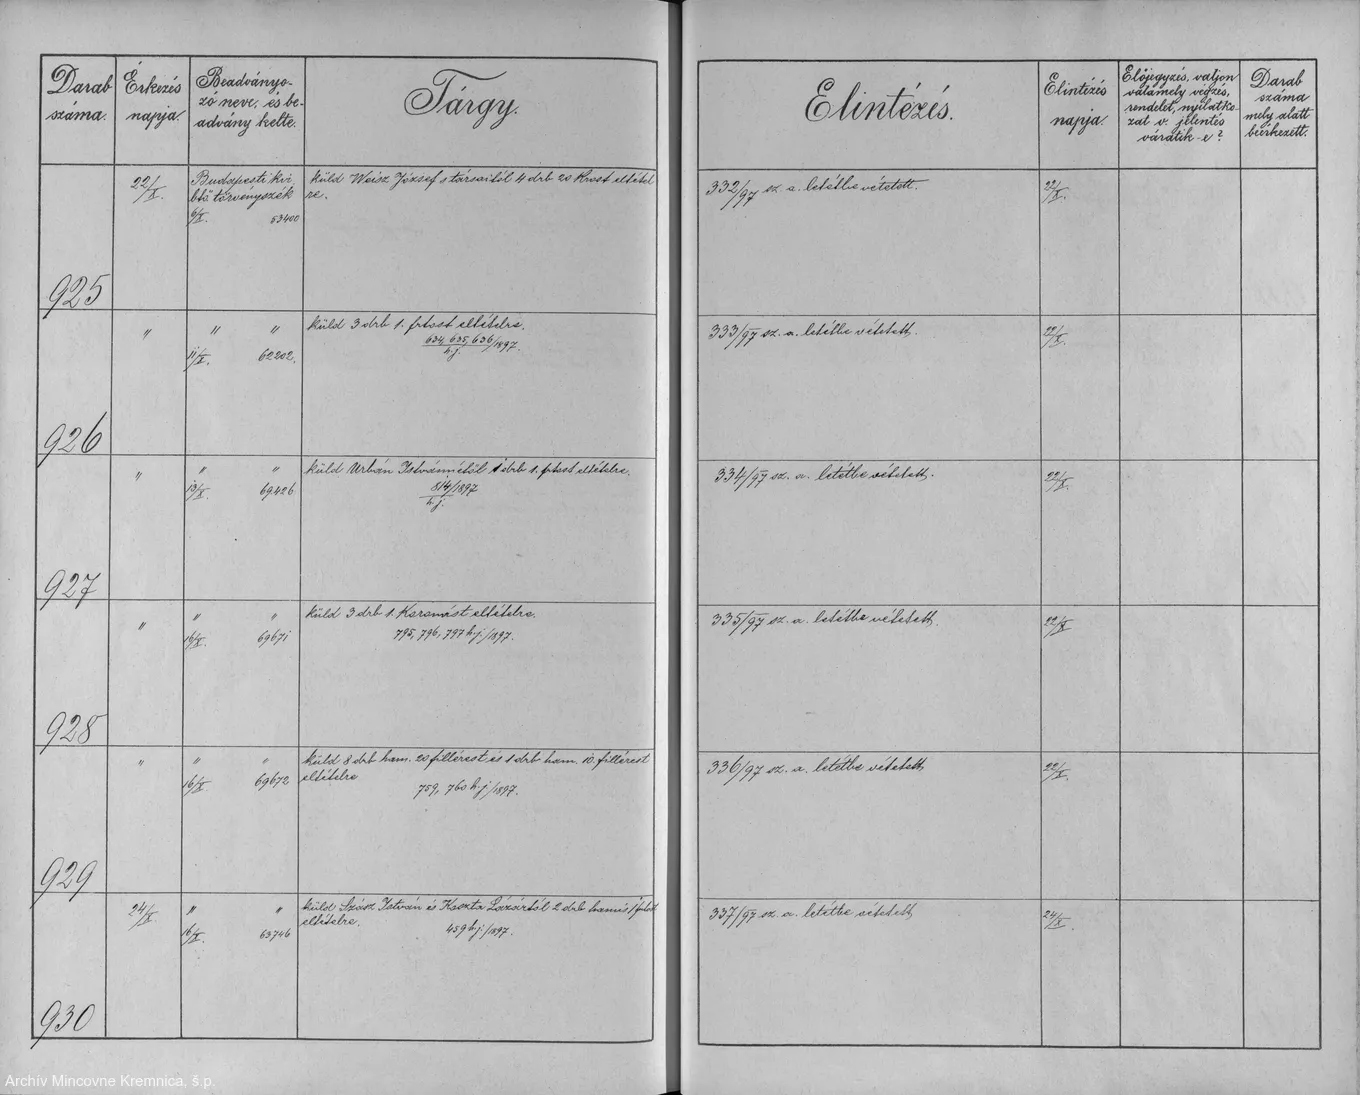 Darab
száma.
Érkezés
napja.
Beadványo-
zó neve, és be-
advány kelte.
Tárgy.
Elintézés.
Elintézés
napja.
Előjegyzés, valjon
valamely végzés,
rendelet, nyilatko-
zat v. jelentés
váratik-e?
Darab
száma
mely alatt
beérkezett.
925
22/X.
Budapesti kir.
btő. törvényszék
6/X. 53400
küld Weisz József s társaitól 4 drb 20 krost eltétel
re.
332/97 sz. a. letétbe vétetett.
22/X.
926
" " "
11/X. 62202.
küld 3 drb 1. frtost eltételre.
634, 635, 636/1897.
h.j.
333/97 sz. a. letétbe vétetett.
22/X.
927
" " "
13/X. 69426
küld Urbán Istvánnétől 1 drb 1. frtost eltételre.
814/1897
h.j.
334/97 sz. a. letétbe vétetett.
22/X.
928
" " "
16/X. 69671
küld 3 drb 1. Koronást eltételre.
795, 796, 797 h.j/1897.
335/97 sz. a. letétbe vétetett.
22/X
929
" " "
16/X. 69672
küld 8 drb ham. 20 fillérest és 1 drb ham. 10. fillérest
eltételre
759, 760 h.j/1897.
336/97 sz. a. letétbe vétetett.
22/X.
930
24/X. " "
16/X. 63746
küld Szász István és Koszta Lázártól 2 drb hamis 1 frtost
eltételre.
459 h.j/1897.
337/97 sz. a. letétbe vétetett
24/X.
Archív Mincovne Kremnica, š.p.